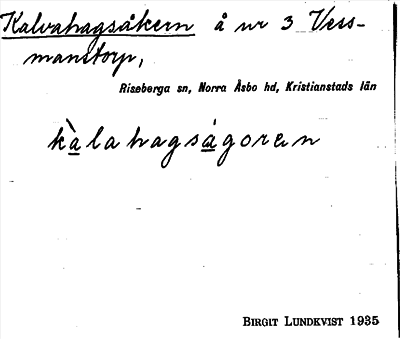 Kalvahagsåkern å nr 3 Vess-
manstorp,
Riseberga sn, Norra Åsbo hd, Kristianstads län
kàlahagságoren
BIRGIT LUNDKVIST 1935